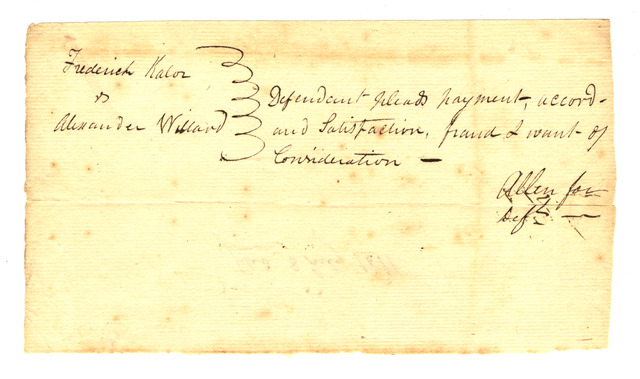 Frederick Kalor
vs
Alexander Willard
Defendant pleads payment, accord-
and Satisfaction, fraud & want of
Consideration —
Allen for
Deft. —